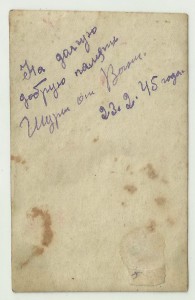 На долгую
добрую память
Шуре от Вовы.
23. 2. 45 года